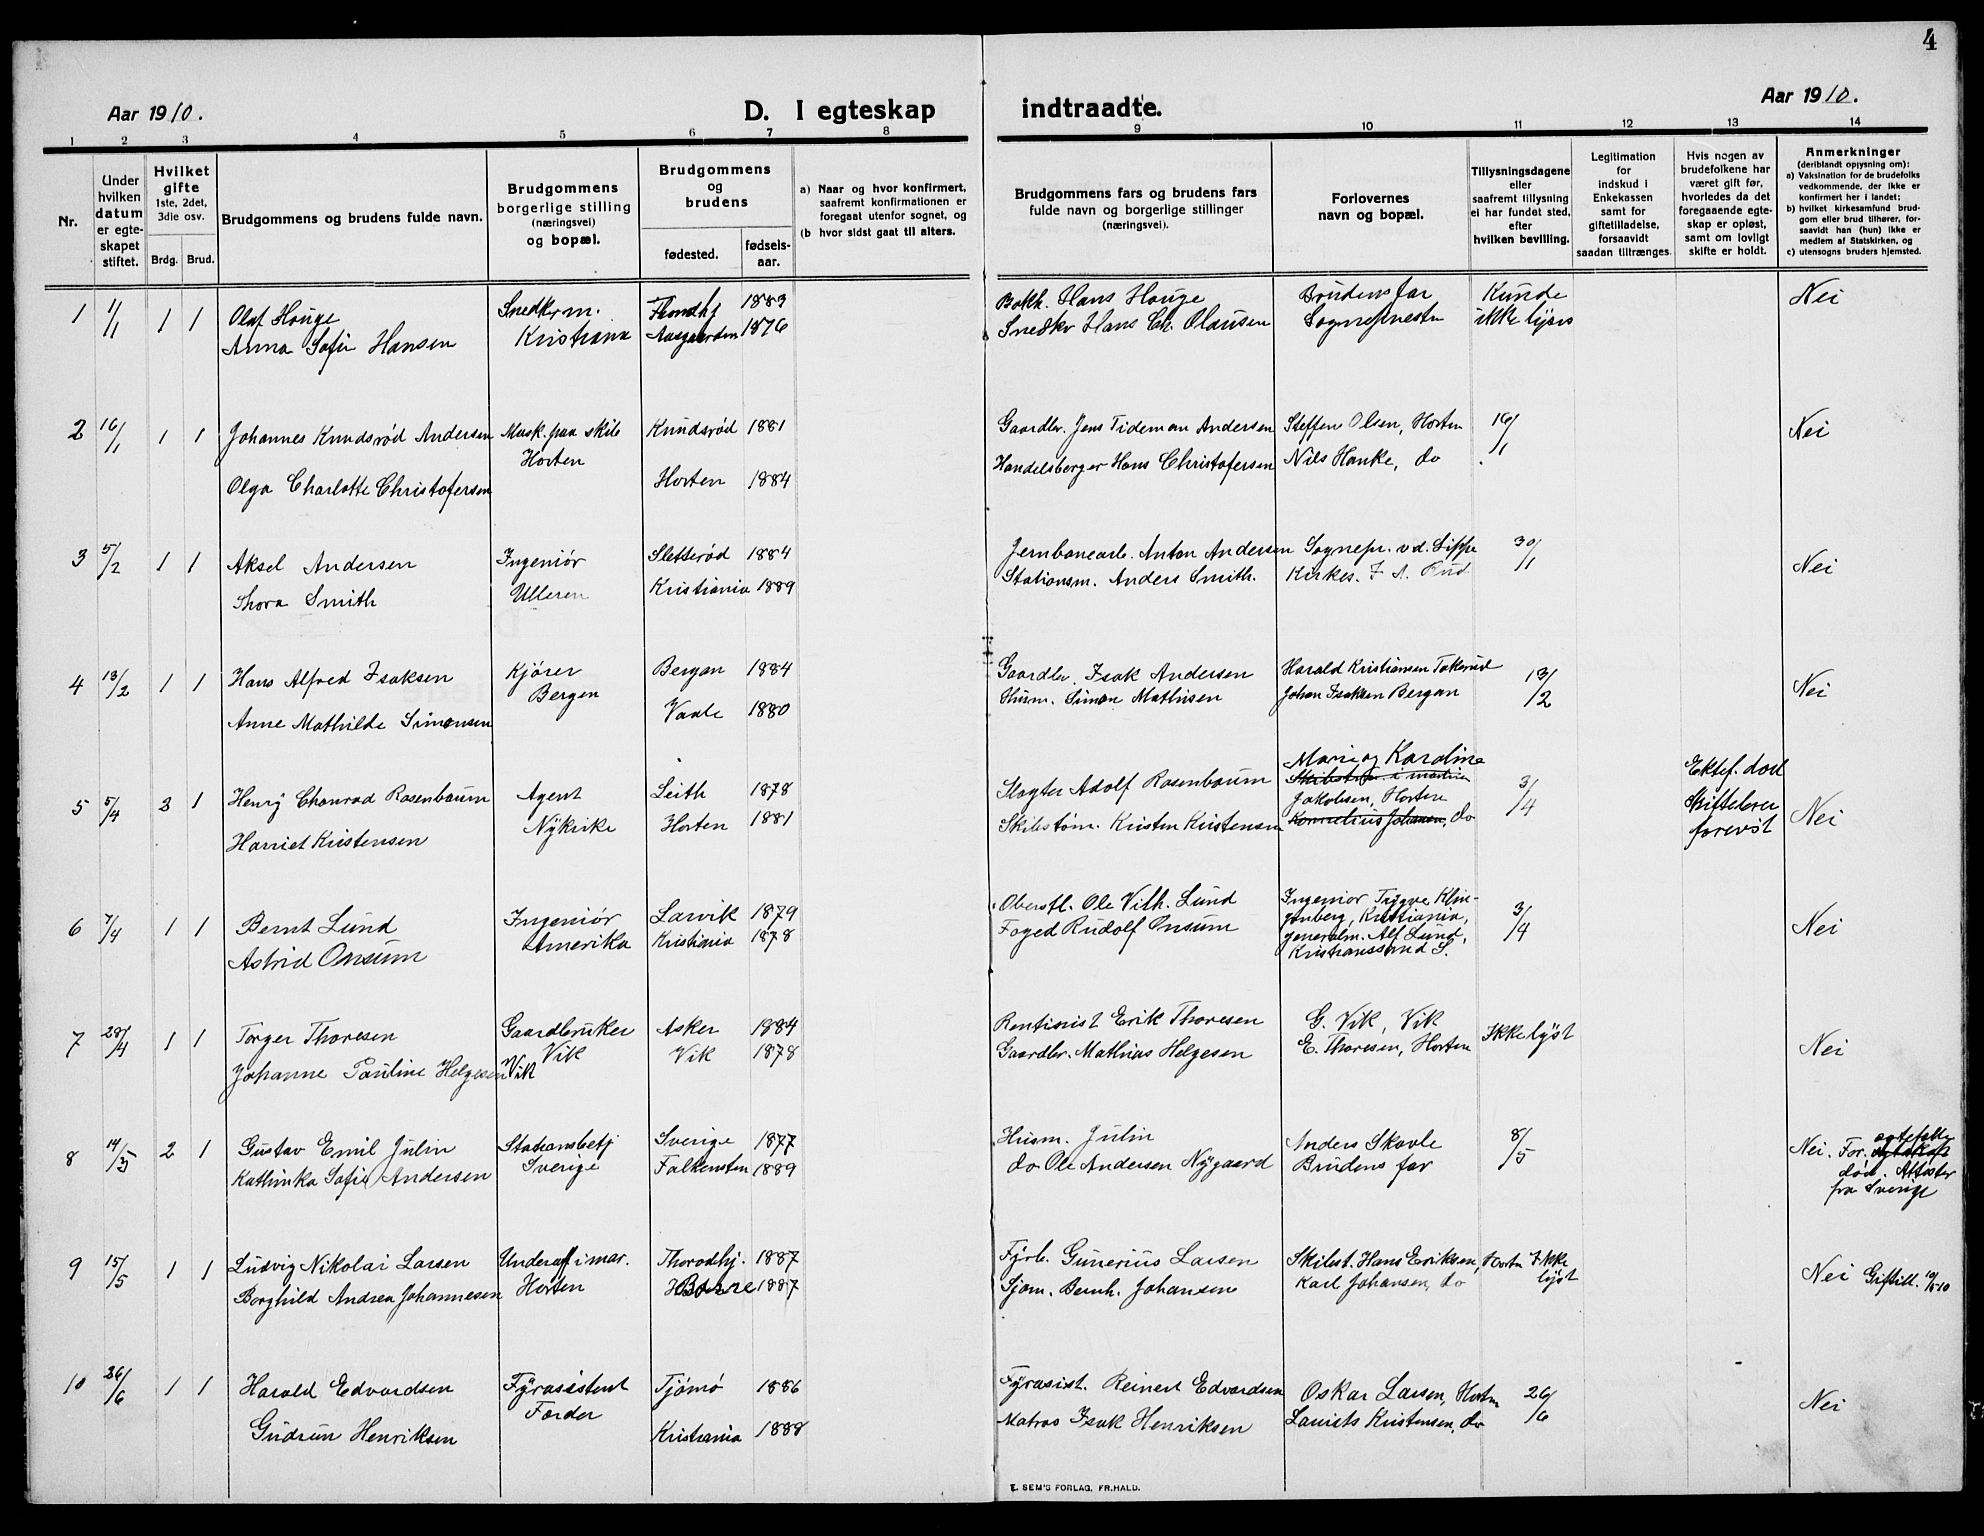 4
Aar 1910.
D. I egteskap indtraadte.
Aar 1910.
1 2 3 4 5 6 7 8 9 10 11 12 13 14
Nr.
Under hvilken datum er egteskapet stiftet.
Hvilket gifte 1ste, 2det, 3die osv.
Brdg. Brud.
Brudgommens og brudens fulde navn.
Brudgommens borgerlige stilling (næringsvei) og bopæl.
Brudgommens og brudens
fødested.
fødselsaar.
a) Naar og hvor konfirmert, saafremt konfirmationen er foregaat utenfor sognet, og
(b hvor sidst gaat til alters.
Brudgommens fars og brudens fars fulde navn og borgerlige stillinger (næringsvei).
Forlovernes navn og bopæl.
Tillysningsdagene eller saafremt tillysning ei har fundet sted, efter hvilken bevilling.
Legitimation for indskud i Enkekassen samt for giftetilladelse, forsaavidt saadan tiltrænges.
Hvis nogen av brudefolkene har været gift før, hvorledes da det foregaaende egteskap er opløst, samt om lovligt skifte er holdt.
Anmerkninger (deriblandt opiysning om):
a) Vaksination for de brudefolks vedkommende, der ikke er konfirmert her i landet;
b) hvilket kirkesamfund brudgom eller brud tilhører, forsaavidt han (hun) ikke er medlem af Statskirken, og
c) utensogns bruders hjemsted.
1 1/1 1 1 Olaf Houge Snedkerm. 1883 Bokh. Hans Houge Brudens far Kunde Nei
Anna Sofie Hansen Kristiania Aasgaarden 1876 Snedker Hans Ch. Olausen Sogneprestn ikke lyses
2 16/1 1 1 Johannes Knudsrød Andersen Mask. paa skib Knudsrød 1881 Gaardbr. Jens Tideman Andersen Steffen Olsen, Horten 16/1 Nei
Horten Handelsborger Hans Christofersen Nils Hanke, do
Olga Charlotte Christofersen Horten 1884
3 5/2 1 1 Aksel Andersen Ingeniør Sletterød 1884 Jernbanearb. Anton Andersen Sognepr. v.d. Lippe 30/1 Nei
Thora Smith Ulleren Kristiania 1889 Stationsm. Anders Smith. Kirkes. J. A. Rud
4 13/2 1 1 Hans Alfred Isaksen Kjører Bergan 1884 Gaardbr. Isak Andersen Harald Kristiansen Takerud 13/2 Nei
Bergen Husm. Simon Mathisen Johan Isaksen Bergan
Anne Mathilde Simonsen Vaale 1880
Marie og Karoline
5 5/4 2 1 Henry Chonrad Rosenbaum Agent Leith 1878 Slagter Adolf Rosenbaum Jakobsen, Horten 3/4 Ektef. død Skiftelever forevist Nei
Harriet Kristensen Nykirke Horten 1881 Skibstøm. Kristen Kristensen Kornelius Johansen, do
6 7/4 1 1 Bernt Lund Ingeniør Larvik 1879 Oberstl. Ole Vilh. Lund Ingeniør Trygve Klingenberg, Kristiania, 3/4 Nei
Astrid Onsum Amerika Kristiania 1878 Foged Rudolf Onsum generalm. Alf Lund, Kristianssand S.
7 28/4 1 1 Torger Thoresen Gaardbruker Asker 1884 Rentierist Erik Thoresen G. Vik, Vik Ikke lyst Nei
Johanne Pauline Helgesen Vik Vik Vik 1878 Gaardbr. Mathias Helgesen E. Thoresen, Horten
8 14/5 2 1 Gustav Emil Julin Stationsbetj Sverige 1877 Husm. Julin Anders Skavle 8/5 Nei. For. egtefelle død. Attester fra Sverige
Kathinka Sofie Andersen Sverige Falkensten 1889 do Ole Andersen Nygaard Brudens far
9 15/5 1 1 Ludvig Nikolai Larsen Underoff i mar. Thorodhj. 1887 Fyrb. Gunerius Larsen Skibst. Hans Eriksen, Horten Ikke lyst Nei Giftill. 10/5 10
Borghild Andrea Johannesen Horten Borre 1887 Sjøm. Bernh. Johansen Karl Johansen, do
10 26/6 1 1 Harald Edvardsen Fyrassistent Tjømø 1886 Fyrasist. Reinert Edvardsen Oskar Larsen, Horten 26/6 Nei
Gudrun Henriksen Færder Kristiania 1888 Matros Isak Henriksen Lauists Kristensen, do
E. SEM'S FORLAG, FR.HALD.